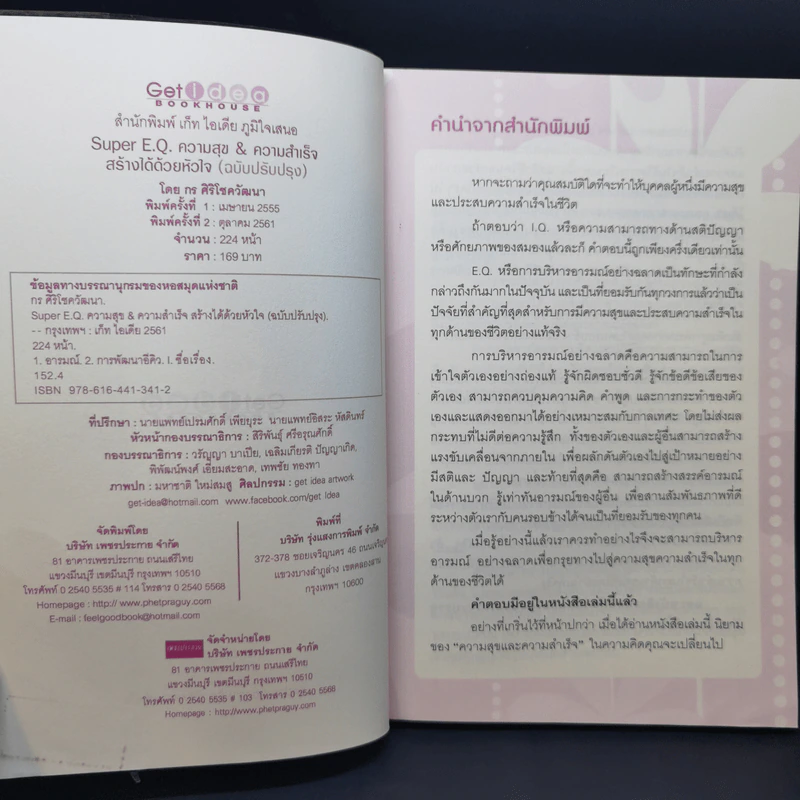 Get idea
BOOKHOUSE
สำนักพิมพ์ เก็ท ไอเดีย ภูมิใจเสนอ
Super E.Q. ความสุข & ความสำเร็จ
สร้างได้ด้วยหัวใจ (ฉบับปรับปรุง)
โดย กร ศิริโชควัฒนา
พิมพ์ครั้งที่ 1 : เมษายน 2555
พิมพ์ครั้งที่ 2 : ตุลาคม 2561
จำนวน : 224 หน้า
ราคา : 169 บาท
ข้อมูลทางบรรณานุกรมของหอสมุดแห่งชาติ
กร ศิริโชควัฒนา.
Super E.Q. ความสุข & ความสำเร็จ สร้างได้ด้วยหัวใจ (ฉบับปรับปรุง).
-- กรุงเทพฯ : เก็ท ไอเดีย 2561
224 หน้า.
1. อารมณ์. 2. การพัฒนาอีคิว. I. ชื่อเรื่อง.
152.4
ISBN 978-616-441-341-2
ที่ปรึกษา : นายแพทย์เปรมศักดิ์ เพียยุระ นายแพทย์อิสระ หัสดินทร์
หัวหน้ากองบรรณาธิการ : สิริพันธุ์ ศรีอรุณศักดิ์
กองบรรณาธิการ : วรัญญา บาเปีย, เฉลิมเกียรติ ปัญญาเกิด,
พิพัฒน์พงศ์ เอี่ยมสะอาด, เทพชัย ทองทา
ภาพปก : มหาชาติ ใหม่สมสู ศิลปกรรม : get idea artwork
get-idea@hotmail.com www.facebook.com/get Idea
จัดพิมพ์โดย
บริษัท เพชรประกาย จำกัด
81 อาคารเพชรประกาย ถนนเสรีไทย
แขวงมีนบุรี เขตมีนบุรี กรุงเทพฯ 10510
โทรศัพท์ 0 2540 5535 # 114 โทรสาร 0 2540 5568
Homepage : http:// www.phetpraguy.com
E-mail : feelgoodbook@hotmail.com
พิมพ์ที่
บริษัท รุ่งแสงการพิมพ์ จำกัด
372-378 ซอยเจริญนคร 46 ถนนเจริญนคร
แขวงบางลำภูล่าง เขตคลองสาน
กรุงเทพฯ 10600
จัดจำหน่ายโดย
บริษัท เพชรประกาย จำกัด
81 อาคารเพชรประกาย ถนนเสรีไทย
แขวงมีนบุรี เขตมีนบุรี กรุงเทพฯ 10510
โทรศัพท์ 0 2540 5535 # 103 โทรสาร 0 2540 5568
Homepage : http://www.phetpraguy.com
คำนำจากสำนักพิมพ์
หากจะถามว่าคุณสมบัติใดที่จะทำให้บุคคลผู้หนึ่งมีความสุข
และประสบความสำเร็จในชีวิต
ถ้าตอบว่า I.Q. หรือความสามารถทางด้านสติปัญญา
หรือศักยภาพของสมองแล้วละก็ คำตอบนี้ถูกเพียงครึ่งเดียวเท่านั้น
E.Q. หรือการบริหารอารมณ์อย่างฉลาดเป็นทักษะที่กำลัง
กล่าวถึงกันมากในปัจจุบัน และเป็นที่ยอมรับกันทุกวงการแล้วว่าเป็น
ปัจจัยที่สำคัญที่สุดสำหรับการมีความสุขและประสบความสำเร็จใน
ทุกด้านของชีวิตอย่างแท้จริง
การบริหารอารมณ์อย่างฉลาดคือความสามารถในการ
เข้าใจตัวเองอย่างถ่องแท้ รู้จักผิดชอบชั่วดี รู้จักข้อดีข้อเสียของ
ตัวเอง สามารถควบคุมความคิด คำพูด และการกระทำของตัว
เองและแสดงออกมาได้อย่างเหมาะสมกับกาลเทศะ โดยไม่ส่งผล
กระทบที่ไม่ดีต่อความรู้สึก ทั้งของตัวเองและผู้อื่นสามารถสร้าง
แรงขับเคลื่อนจากภายใน เพื่อผลักดันตัวเองไปสู่เป้าหมายอย่าง
มีสติและ ปัญญา และท้ายที่สุดคือ สามารถสร้างสรรค์อารมณ์
ในด้านบวก รู้เท่าทันอารมณ์ของผู้อื่น เพื่อสานสัมพันธภาพที่ดี
ระหว่างตัวเรากับคนรอบข้างได้จนเป็นที่ยอมรับของทุกคน
เมื่อรู้อย่างนี้แล้วเราควรทำอย่างไรจึงจะสามารถบริหาร
อารมณ์ อย่างฉลาดเพื่อกรุยทางไปสู่ความสุขความสำเร็จในทุก
ด้านของชีวิตได้
คำตอบมีอยู่ในหนังสือเล่มนี้แล้ว
อย่างที่เกริ่นไว้ที่หน้าปกว่า เมื่อได้อ่านหนังสือเล่มนี้ นิยาม
ของ “ความสุขและความสำเร็จ” ในความคิดคุณจะเปลี่ยนไป